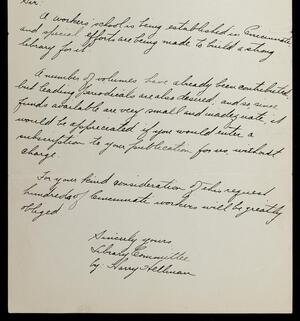 Sir:
A workers' school is being established in Cincinnati
and special efforts are being made to build a strong
library for it.
A number of volumes have already been contributed
but leading periodicals are also desired, and as our
funds available are very small and inadequate, it
would be appreciated if you would enter a
subscription to your publication for us, without
charge.
For your kind consideration of this request
hundreds of Cincinnati workers will be greatly
obliged.
Sincerely yours
Library Committee
by: Harry Hellman